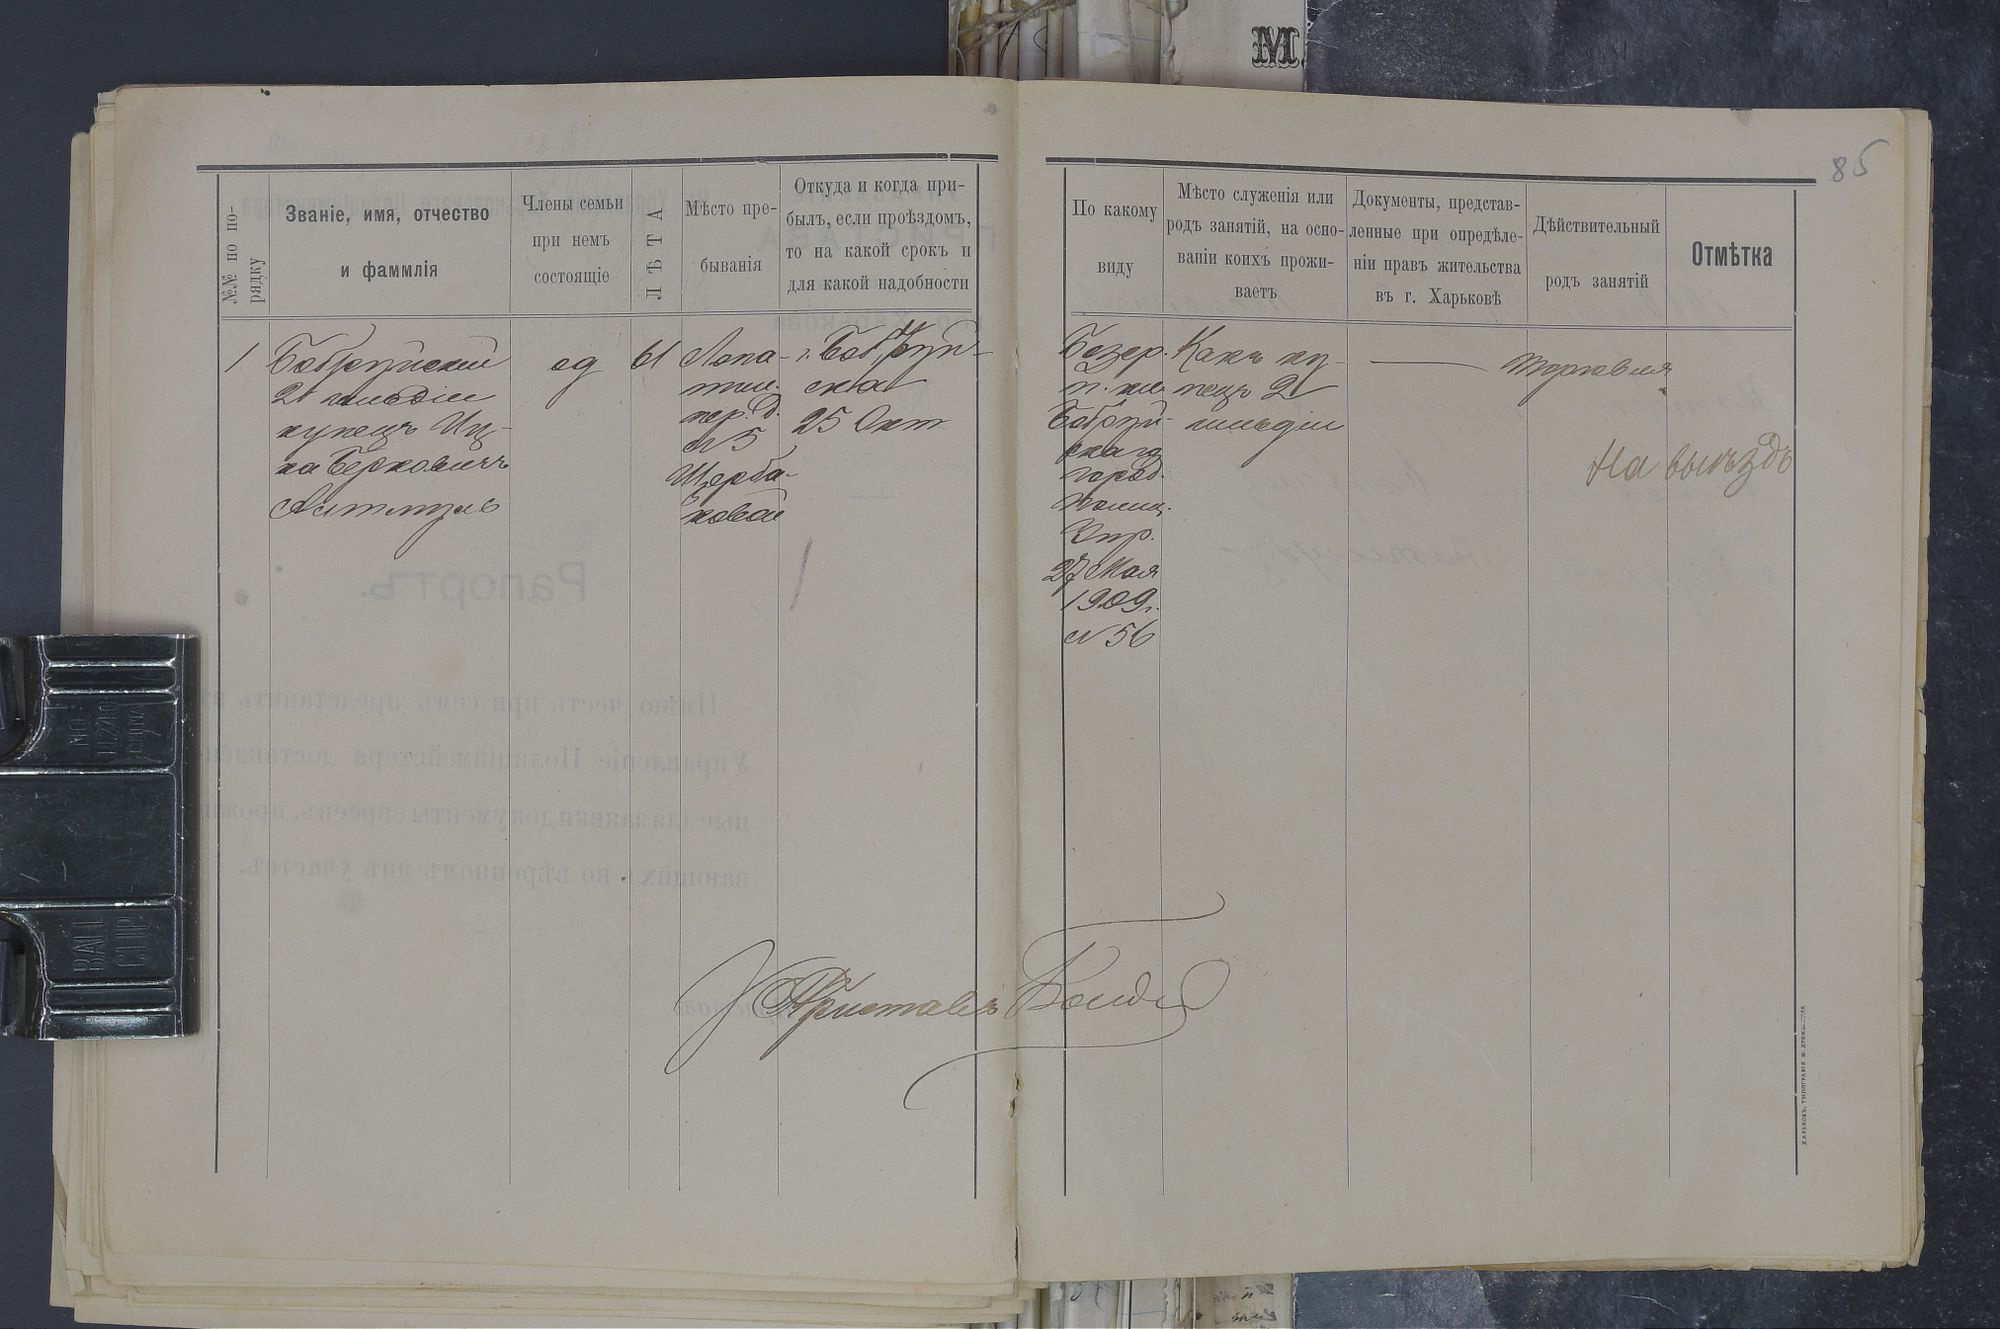 М.
85
№№ по по-
рядку
Званіе, имя, отчество
и фаммлія
Члены семьи
при немъ
состоящіе
ЛѢТА
Мѣсто пре-
быванія
Откуда и когда при-
былъ, если проѣздомъ,
то на какой срокъ и
для какой надобности
По какому
виду
Мѣсто служенія или
родъ занятій, на осно-
ваніи коихъ прожи-
ваетъ
Документы, представ-
ленные при опредѣле-
ніи правъ жительства
въ г. Харьковѣ
Дѣйствительный
родъ занятій
Отмѣтка
1
Бобруйскій
2й гильдіи
купецъ Иц-
ка Берковичъ
од
61
Лопа-
тин.
пер. д.
№ 5
Щерба-
ковой
г. Бобруй-
ска
25 Окт
Безср.
п. кн.
Бобруй-
скаго
город.
Полиц.
Упр.
27 Мая
1909 г.
№ 56
Какъ ку-
пецъ 2й
гильдіи
Торговля
На выѣздъ
Приставъ
Рапортъ.
Имѣю честь при семъ представить въ
Управленіе Полиціймейстера доставлен-
ные для явки документы евреевъ, прожи-
вающихъ во ввѣренномъ мнѣ участкѣ.
ХАРЬКОВЪ, ТИПОГРАФІЯ М.
BALL
CLIP.